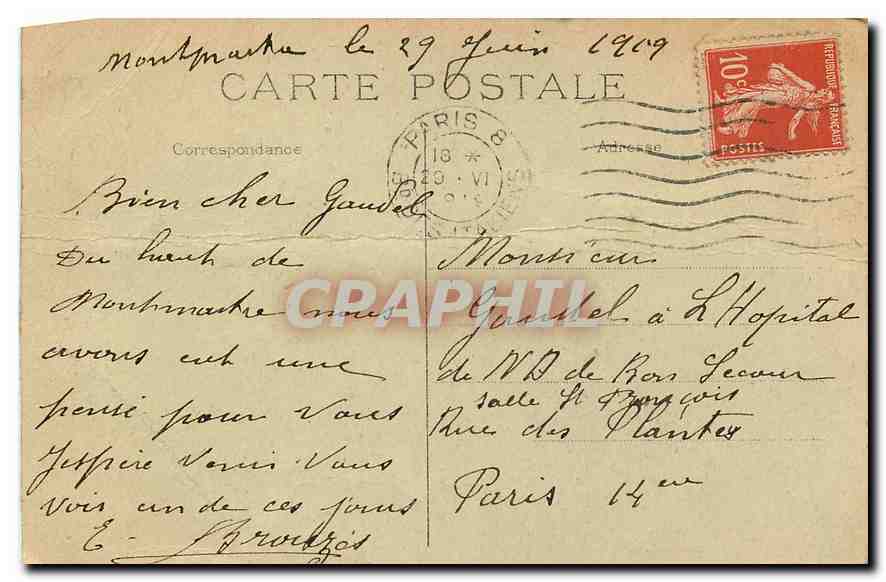 Montmartre le 29 Juin 1909
CARTE POSTALE
Correspondance
Adresse
PARIS 8
18 *
29 · VI
10c
REPUBLIQUE FRANÇAISE
POSTES
Bien cher Gaudel
Du haut de
Montmartre nous
avons eut une
pensé pour vous
J'espère venir vous
voir un de ces jours
E.
Monsieur
Gaudel à L'Hopital
de ND de Bon Secour
salle St François
Rue des Plantes
Paris 14eme
CPAPHIL